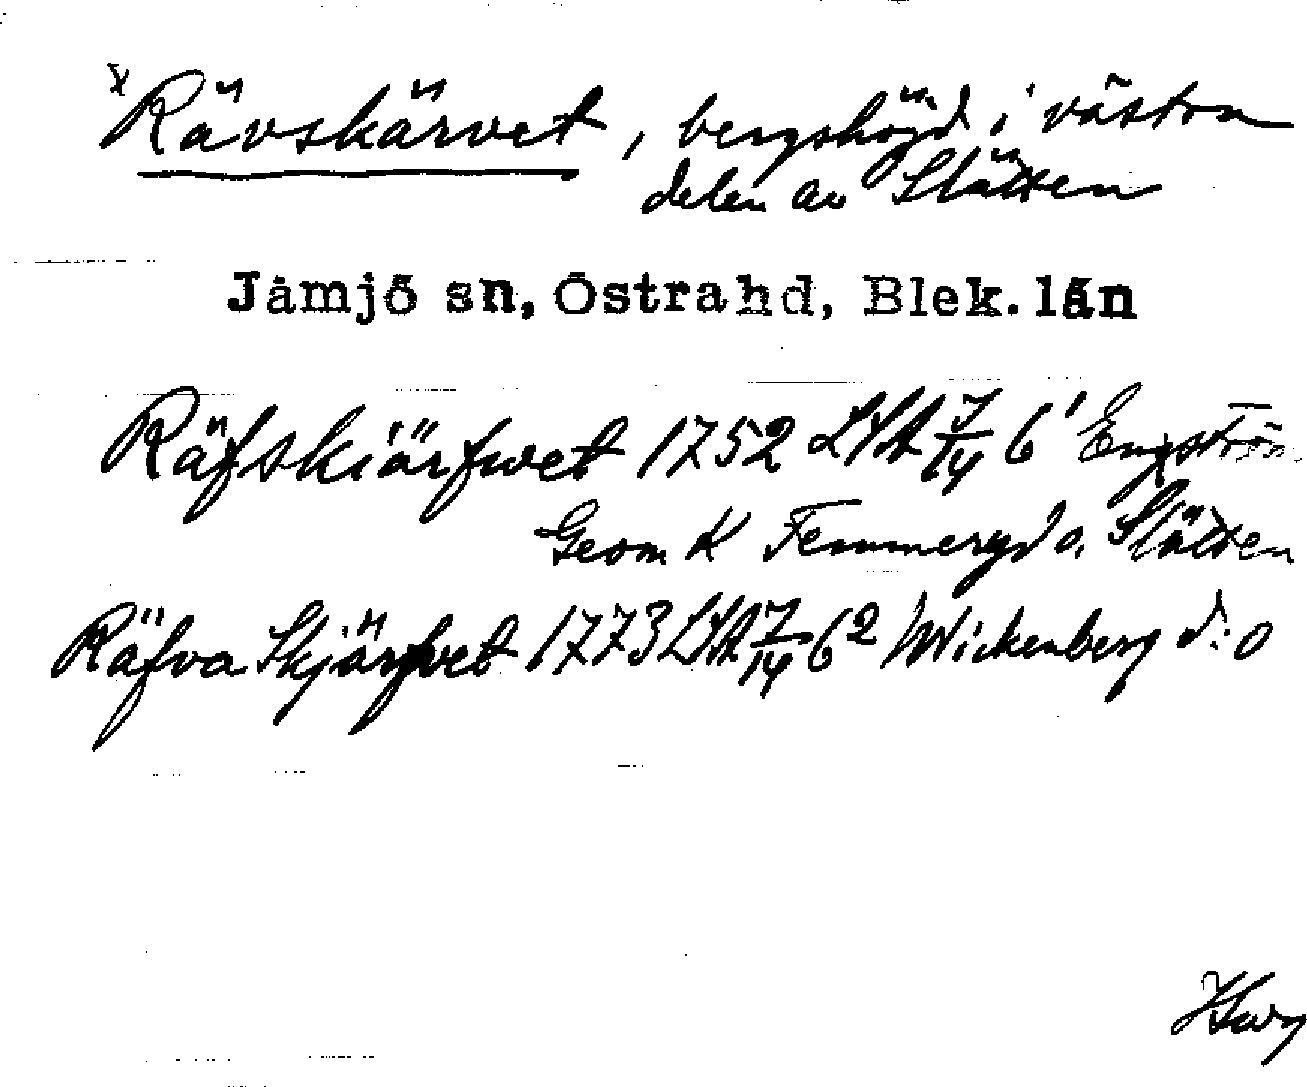 x Rävskärvet, bergshöjd i västra
delen av Slätten
Jämjö sn, Östrahd, Blek. län
Räfskiärfwet 1752 LSA 7/14 6¹ Engström
Geom K Femmeryd o. Slätten
Räfva Skjärfvet 1773 LSA 7/14 6² Wickenberg d:o